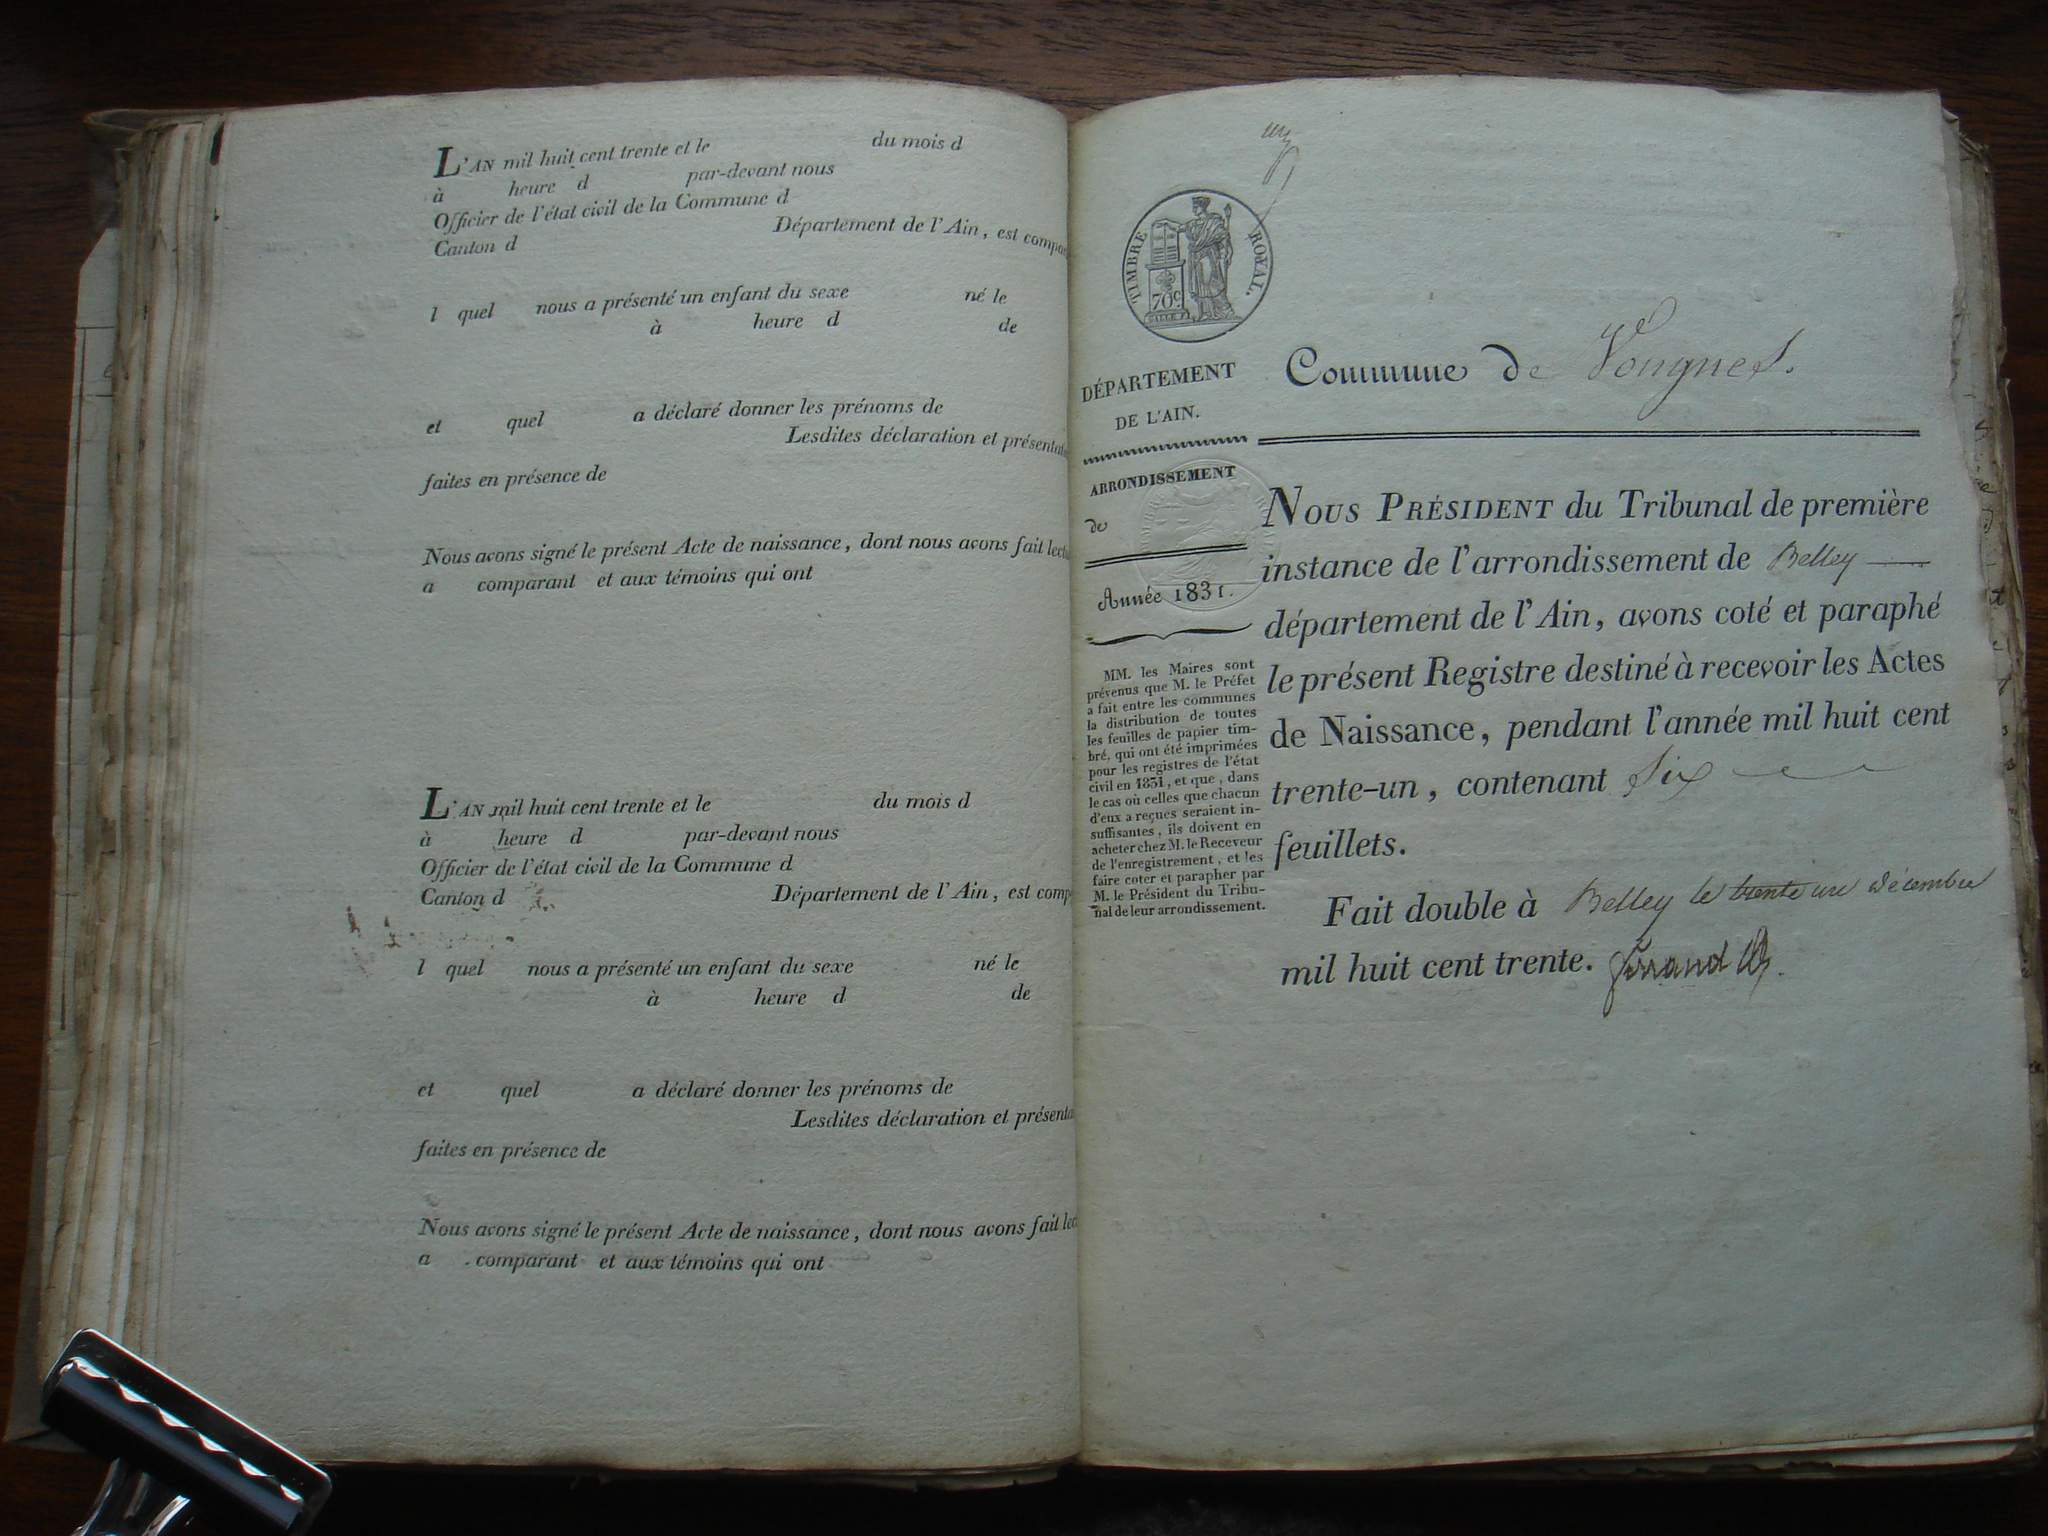 L'AN mil huit cent trente et le du mois d
à heure d par-devant nous
Officier de l'état civil de la Commune d
Canton d Département de l'Ain, est compar
l quel nous a présenté un enfant du sexe né le
à heure d de
et quel a déclaré donner les prénoms de
Lesdites déclaration et présentat
faites en présence de
Nous avons signé le présent Acte de naissance, dont nous avons fait lectu
a comparant et aux témoins qui ont
L'AN mil huit cent trente et le du mois d
à heure d par-devant nous
Officier de l'état civil de la Commune d
Canton d Département de l'Ain, est comp
l quel nous a présenté un enfant du sexe né le
à heure d de
et quel a déclaré donner les prénoms de
Lesdites déclaration et présenta
faites en présence de
Nous avons signé le présent Acte de naissance, dont nous avons fait lec
a comparant et aux témoins qui ont
un
TIMBRE ROYAL.
70c
DÉPARTEMENT
DE L'AIN.
ARRONDISSEMENT
de
Année 1831.
MM. les Maires sont
prévenus que M. le Préfet
a fait entre les communes
la distribution de toutes
les feuilles de papier tim-
bré, qui ont été imprimées
pour les registres de l'état
civil en 1831, et que, dans
le cas où celles que chacun
d'eux a reçues seraient in-
suffisantes, ils doivent en
acheter chez M. le Receveur
de l'enregistrement, et les
faire coter et parapher par
M. le Président du Tribu-
nal de leur arrondissement.
Commune de Vongnes.
NOUS PRÉSIDENT du Tribunal de première
instance de l'arrondissement de Belley
département de l'Ain, avons coté et paraphé
le présent Registre destiné à recevoir les Actes
de Naissance, pendant l'année mil huit cent
trente-un, contenant Six
feuillets.
Fait double à Belley le trente un décembre
mil huit cent trente.